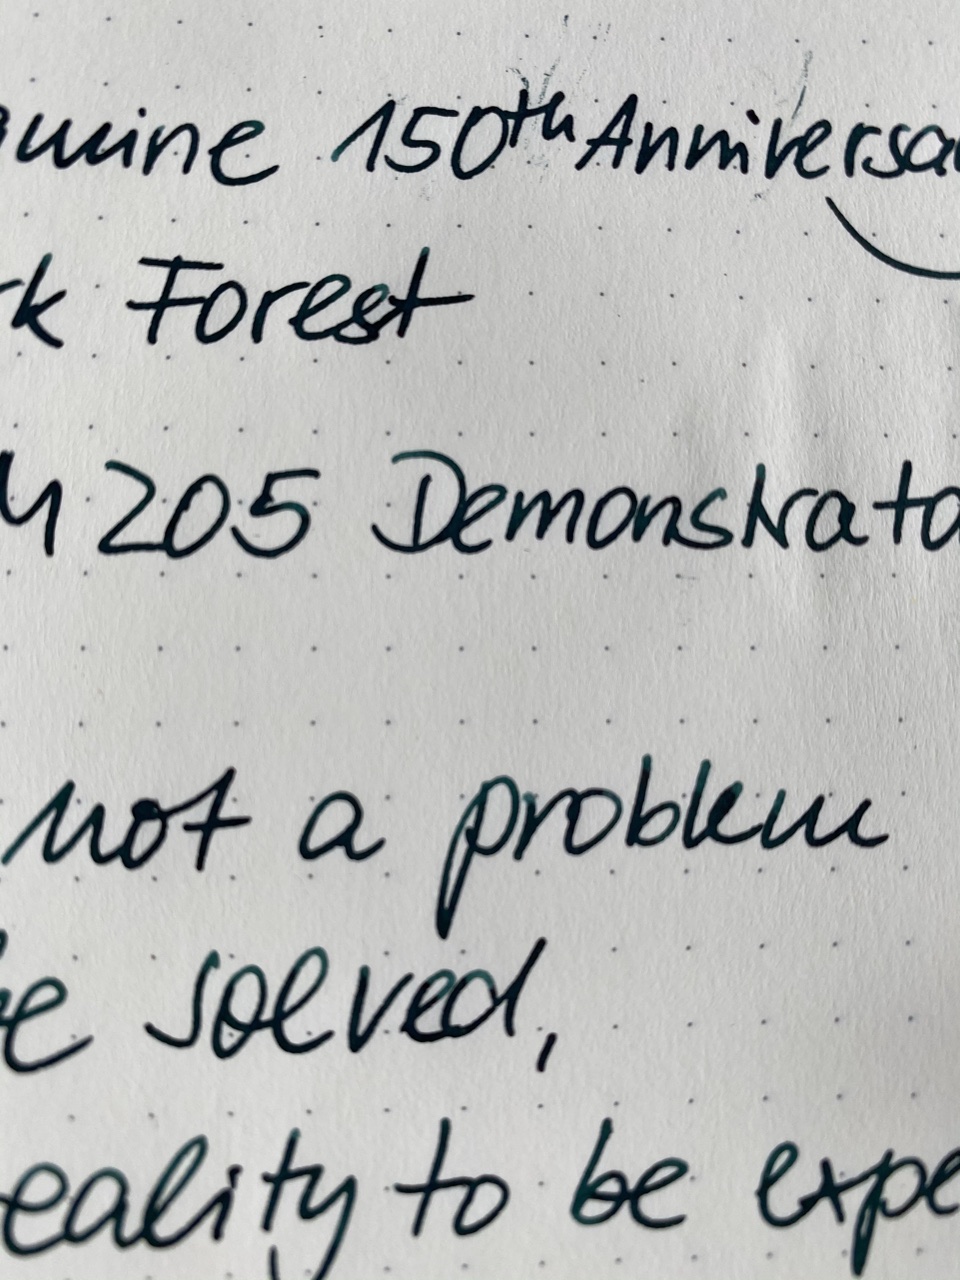 amine 150th Anniversa
rk Forest
M 205 Demonstrato
not a problem
be solved,
eality to be expe